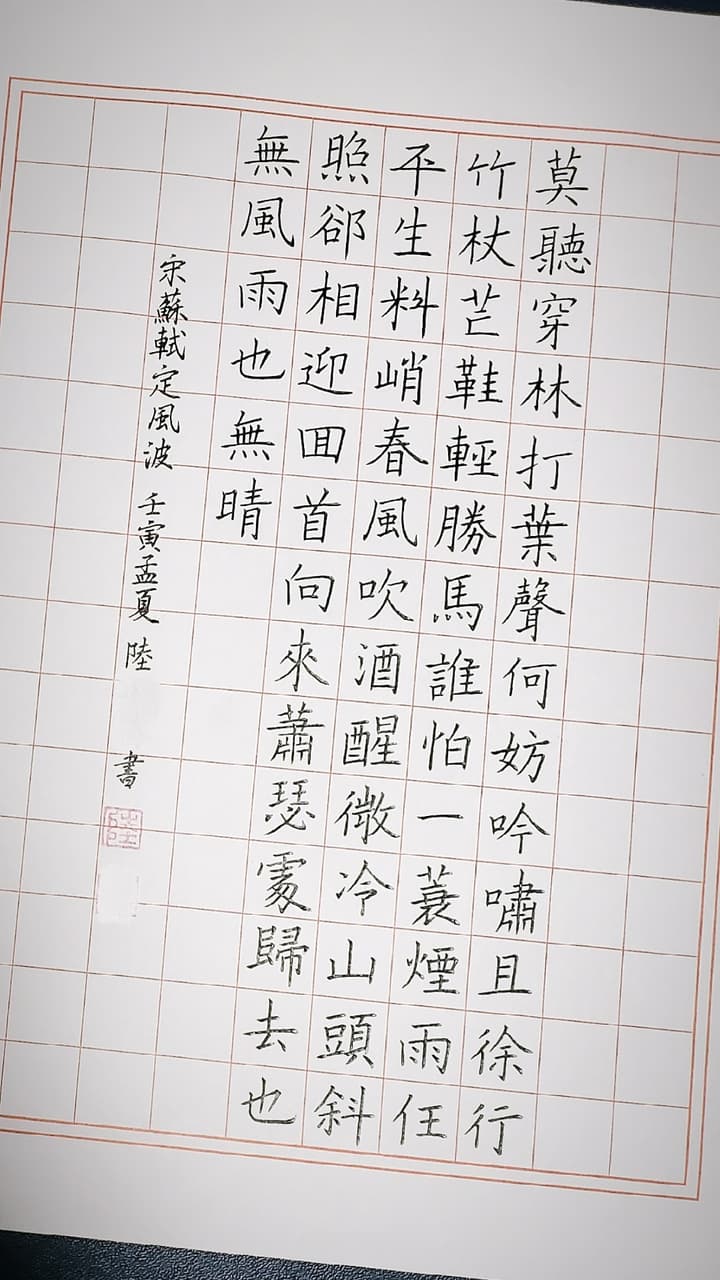 莫聽穿林打葉聲何妨吟嘯且徐行
竹杖芒鞋輕勝馬誰怕一蓑煙雨任
平生料峭春風吹酒醒微冷山頭斜
照卻相迎回首向來蕭瑟處歸去也
無風雨也無晴
宋蘇軾定風波 壬寅孟夏 陸 書
陸